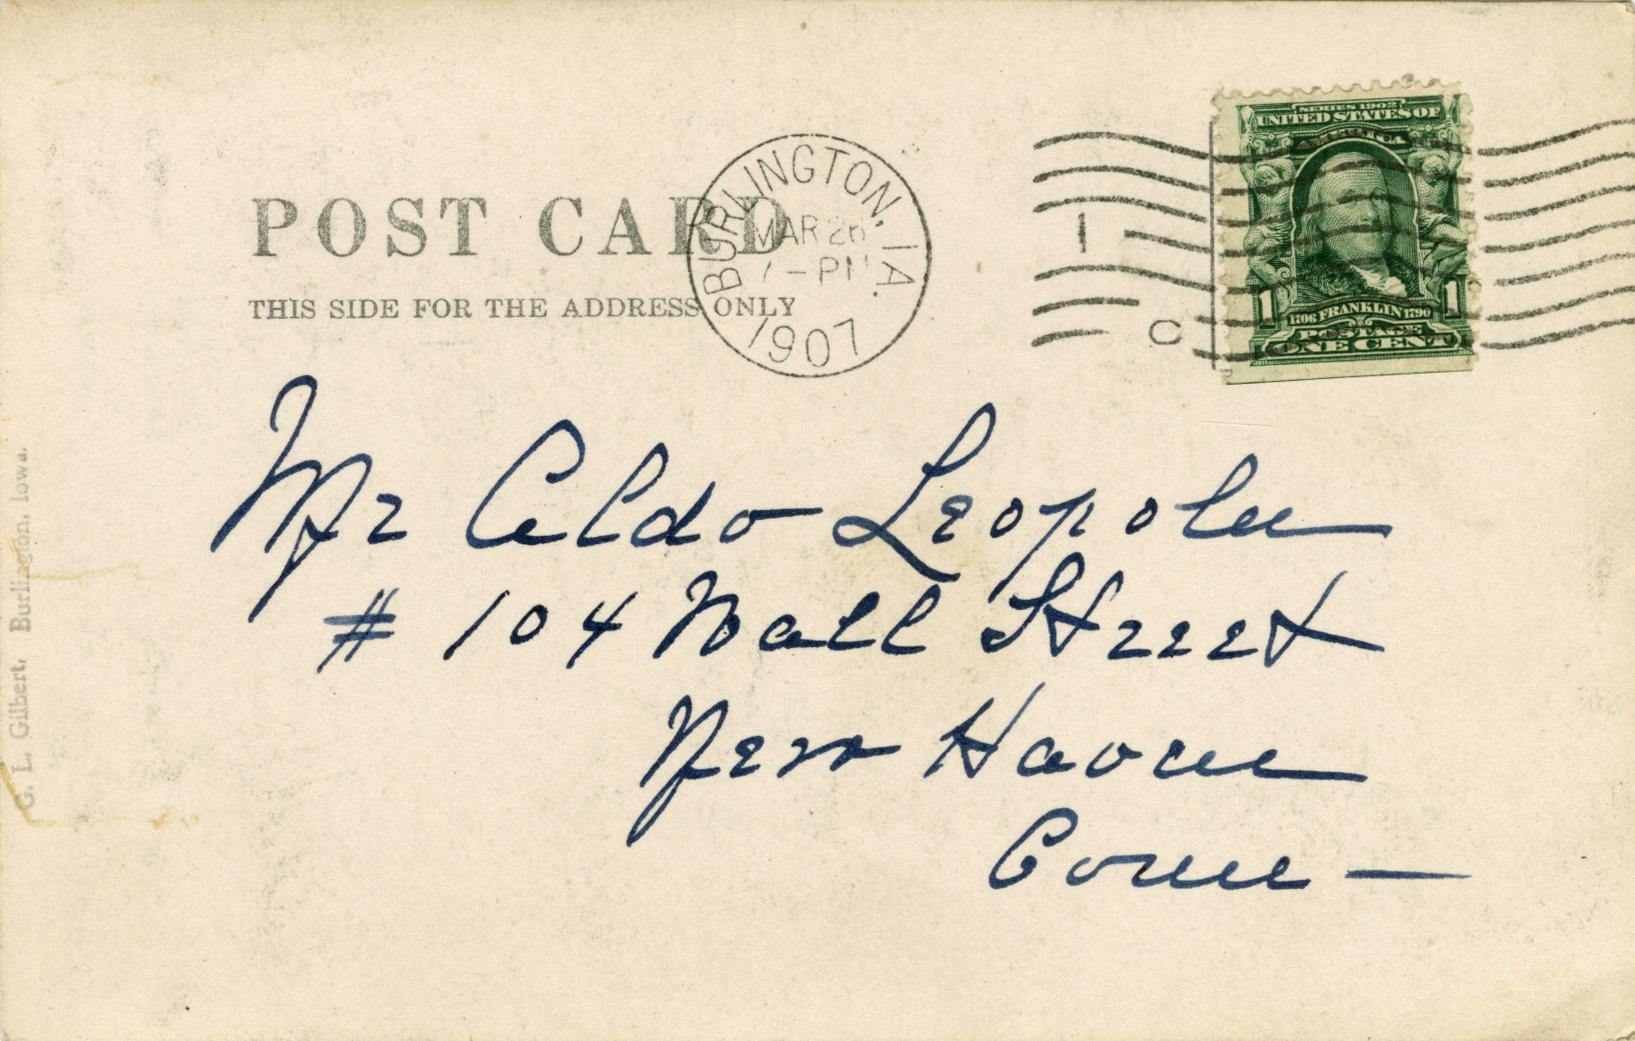 SERIES 1902
UNITED STATES OF
AMERICA
1 1
1706 FRANKLIN 1790
POSTAGE
ONE CENT
BURLINGTON, IA.
MAR 26
7-PM
1907
1
C
POST CARD
THIS SIDE FOR THE ADDRESS ONLY
Mr Aldo Leopold
# 104 Wall Street
New Haven
Conn —
G. L. Gilbert, Burlington, Iowa.